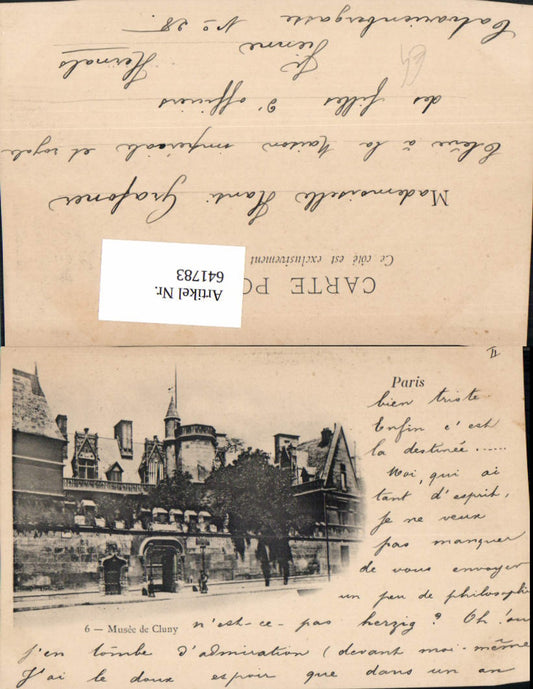 CARTE PO
Ce côté est exclusivement
Artikel Nr.
641783
Mademoiselle Hansi Grafoner
Elève à la Maison impériale et royale
des filles d'officiers
Hernals
Vienne
Calvarienbergasse
No 28
II
Paris
bien triste
Enfin c'est
la destinée......
Moi, qui ai
tant d'esprit,
je ne veux
pas manquer
de vous envoyer
un peu de philosophie
n'est-ce-pas herzig? Oh!
j'en tombe d'admiration (devant moi-même
J'ai le doux espoir que dans un an
6 — Musée de Cluny